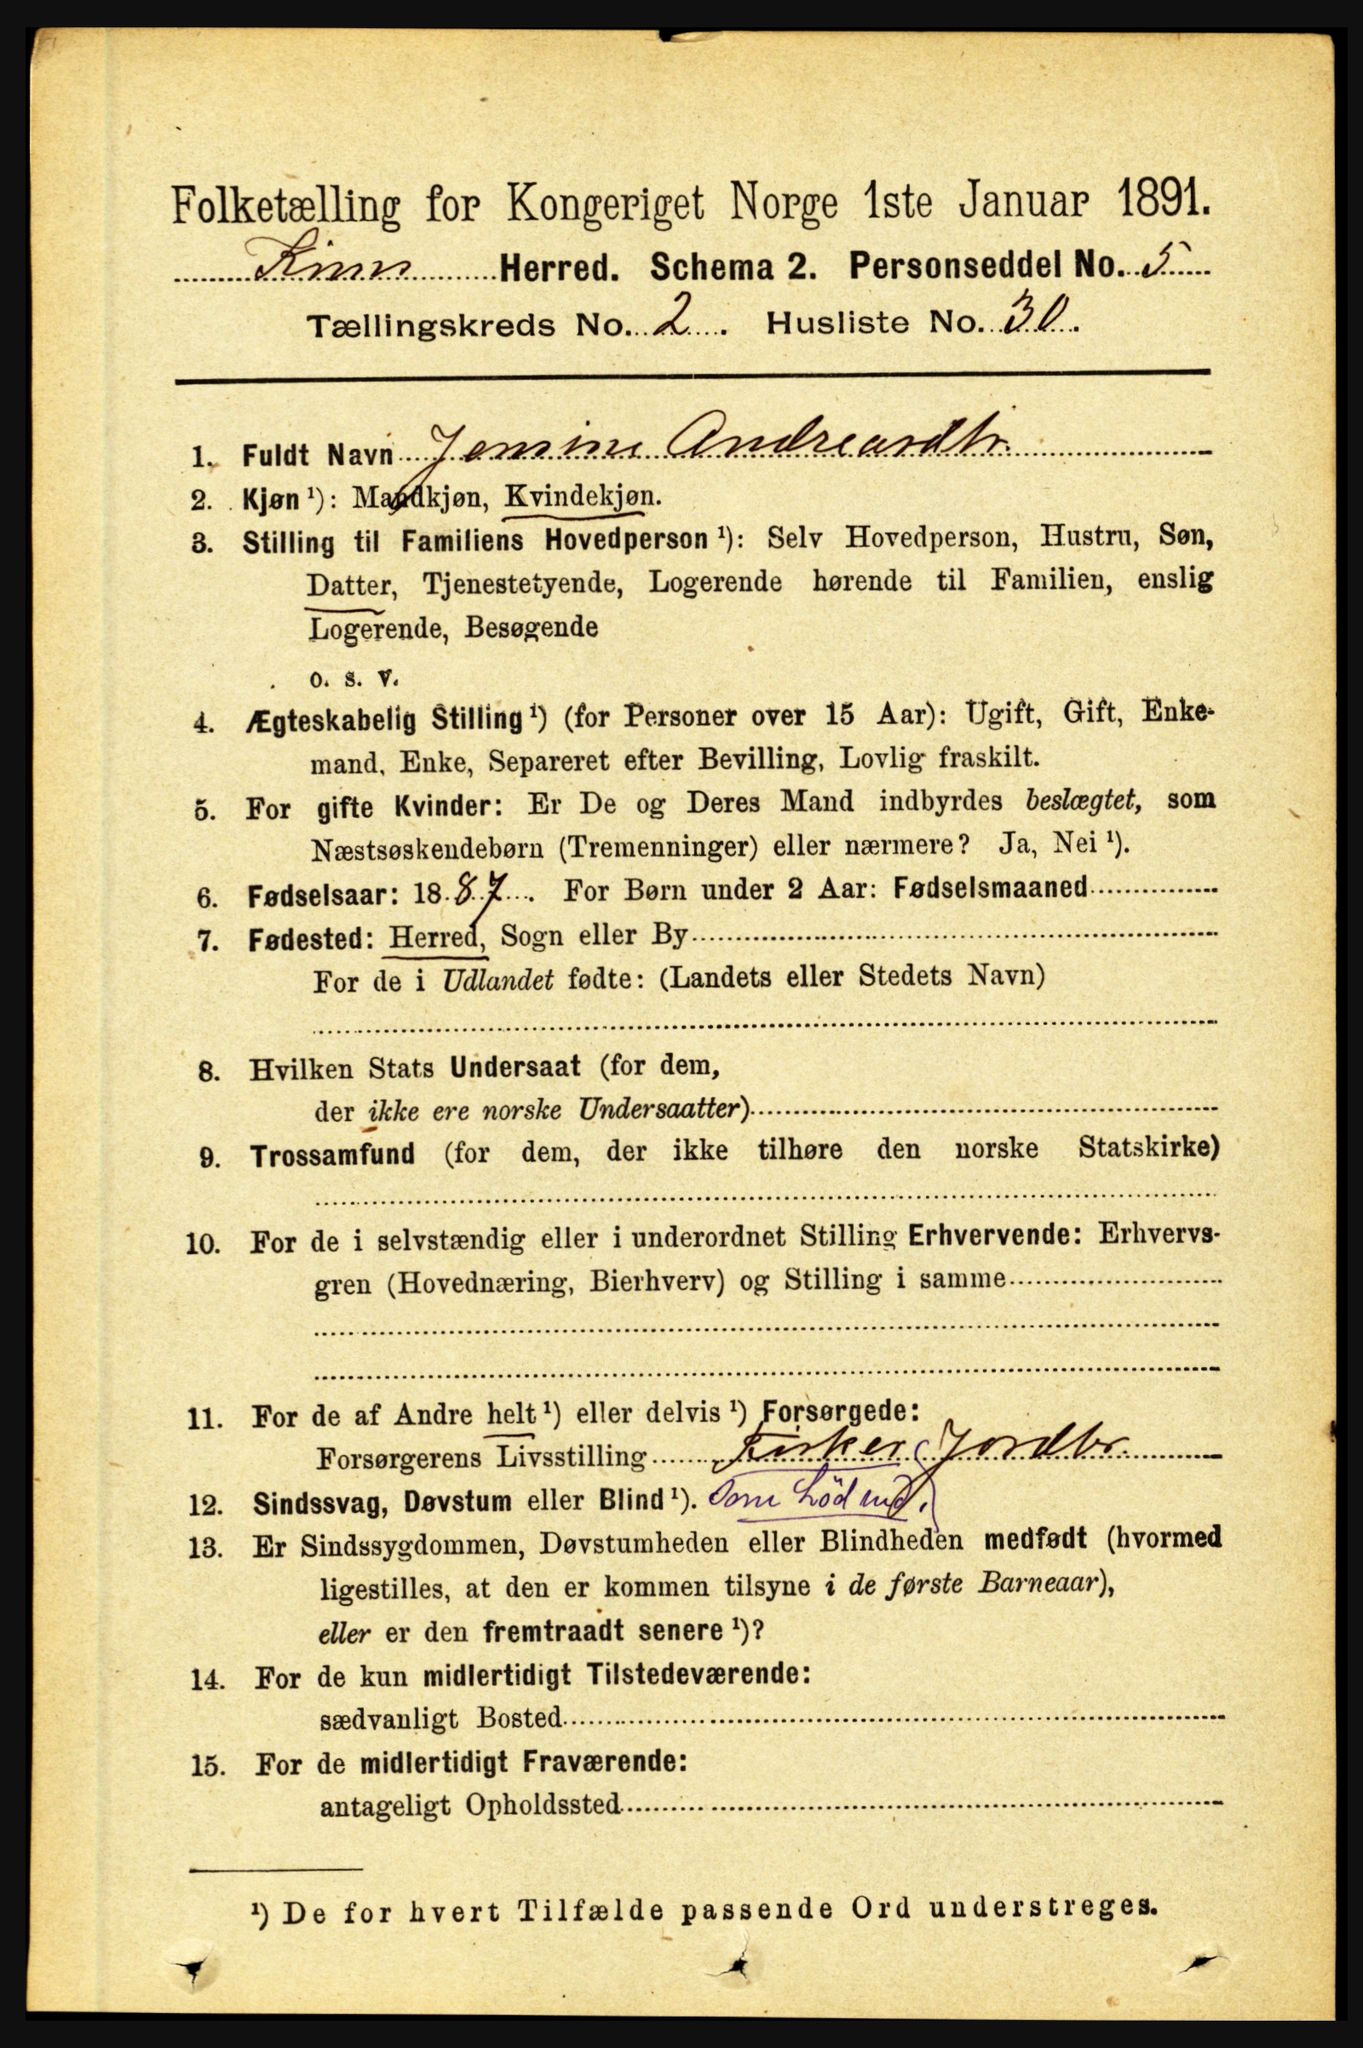 Folketælling for Kongeriget Norge 1ste Januar 1891.
Kinn Herred. Schema 2. Personseddel No. 5
Tællingskreds No. 2. Husliste No. 30.
1. Fuldt Navn Jensine Andreasdtr.
2. Kjøn ¹): Mandkjøn, Kvindekjøn.
3. Stilling til Familiens Hovedperson ¹): Selv Hovedperson, Hustru, Søn,
Datter, Tjenestetyende, Logerende hørende til Familien, enslig
Logerende, Besøgende
o. s. v.
4. Ægteskabelig Stilling ¹) (for Personer over 15 Aar): Ugift, Gift, Enke-
mand, Enke, Separeret efter Bevilling, Lovlig fraskilt.
5. For gifte Kvinder: Er De og Deres Mand indbyrdes beslægtet, som
Næstsøskendebørn (Tremenninger) eller nærmere? Ja, Nei ¹).
6. Fødselsaar: 1887. For Børn under 2 Aar: Fødselsmaaned
7. Fødested: Herred, Sogn eller By
For de i Udlandet fødte: (Landets eller Stedets Navn)
8. Hvilken Stats Undersaat (for dem,
der ikke ere norske Undersaatter)
9. Trossamfund (for dem, der ikke tilhøre den norske Statskirke)
10. For de i selvstændig eller i underordnet Stilling Erhvervende: Erhvervs-
gren (Hovednæring, Bierhverv) og Stilling i samme
11. For de af Andre helt ¹) eller delvis ¹) Forsørgede:
Forsørgerens Livsstilling Fisker, Jordbr.
12. Sindssvag, Døvstum eller Blind ¹).
13. Er Sindssygdommen, Døvstumheden eller Blindheden medfødt (hvormed
ligestilles, at den er kommen tilsyne i de første Barneaar),
eller er den fremtraadt senere ¹)?
14. For de kun midlertidigt Tilstedeværende:
sædvanligt Bosted
15. For de midlertidigt Fraværende:
antageligt Opholdssted
¹) De for hvert Tilfælde passende Ord understreges.